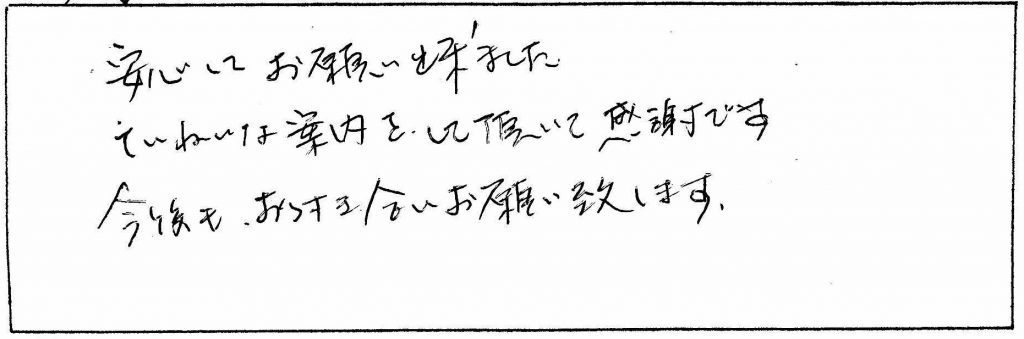 安心してお願い出来ました
ていねいな案内をして頂いて感謝です
今後も、おつき合いお願い致します。